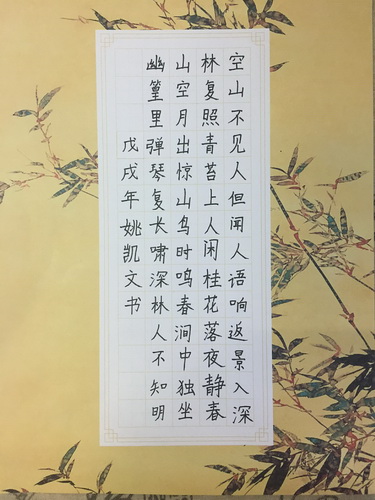 空山不见人但闻人语响返景入深
林复照青苔上人闲桂花落夜静春
山空月出惊山鸟时鸣春涧中独坐
幽篁里弹琴复长啸深林人不知明
戊戌年姚凯文书